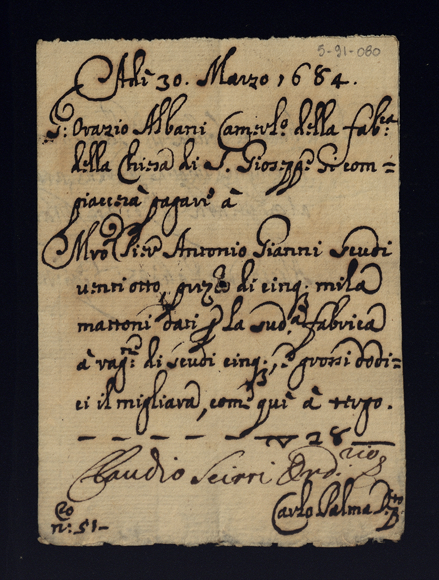 5-91-080
Adì 30. Marzo 1684.
S: Orazio Albani Camerl.o della fab.ca
della Chiesa di S. Giosepp.e Si com=
piacerà pagare à
Mro Pier Antonio Gianni Scudi
venti otto, prezzo di cinq. mila
mattoni dati p la sud.a fabrica
à rag.ne di scudi cinq;, e grossi dodi=
ci il migliara, come quì à tergo.
28
Claudio Ord.rio
Carlo Palma
n.o: 51-